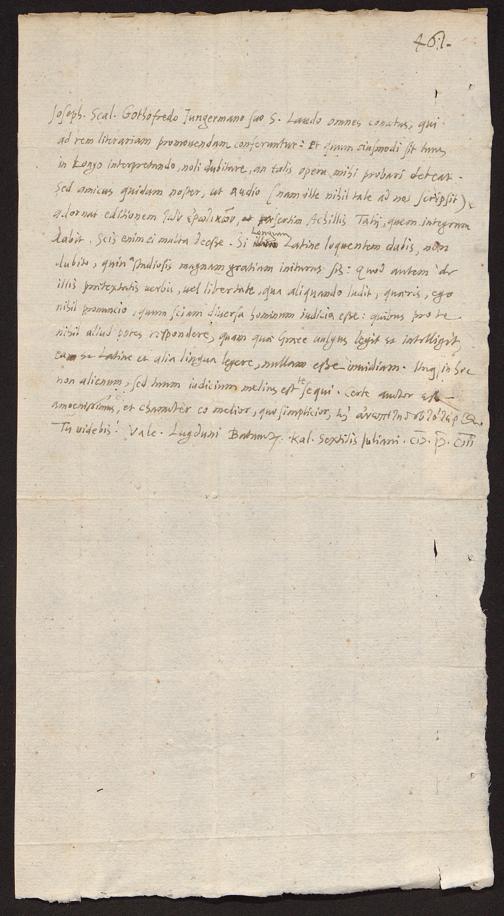 461.
Joseph. Scal. Gothofredo Jungermano suo S. Laudo omnes conatus, qui
ad rem literariam promouendam conferuntur: Et quum eiusmodi sit tuus
in Longo interpretando, noli dubitare, an talis opera mihi probari debeat.
Sed amicus quidam noster, ut audio (nam ille nihil tale ad nos scripsit)
adornat editionem τῶν ἐρωτικῶν, et praesertim Achillis Tatij, quem integrum
dabit. Scis enim ei multa deesse. Si Longum Latine loquentem dabis, non
dubito, quin studiosis magnam gratiam initurus sis: Quod autem de
illis praetextatis verbis, vel libertate, qua aliquando ludit, quaeris, ego
nihil pronuncio, quum sciam diuersa hominum iudicia esse: quibus pro te
nihil aliud potes respondere, quam qui Graece vulgus legit et intelligit,
eum et Latine et alia lingua legere, nullam esse inuidiam. in hoc
non alienum, sed tuum iudicium melius est te sequi. Certe auctor est
amoenissimus, et character eo melior, quo simplicior,
Tu videbis. Vale. Lugduni Batauor. Kal. Sextilis Juliani.